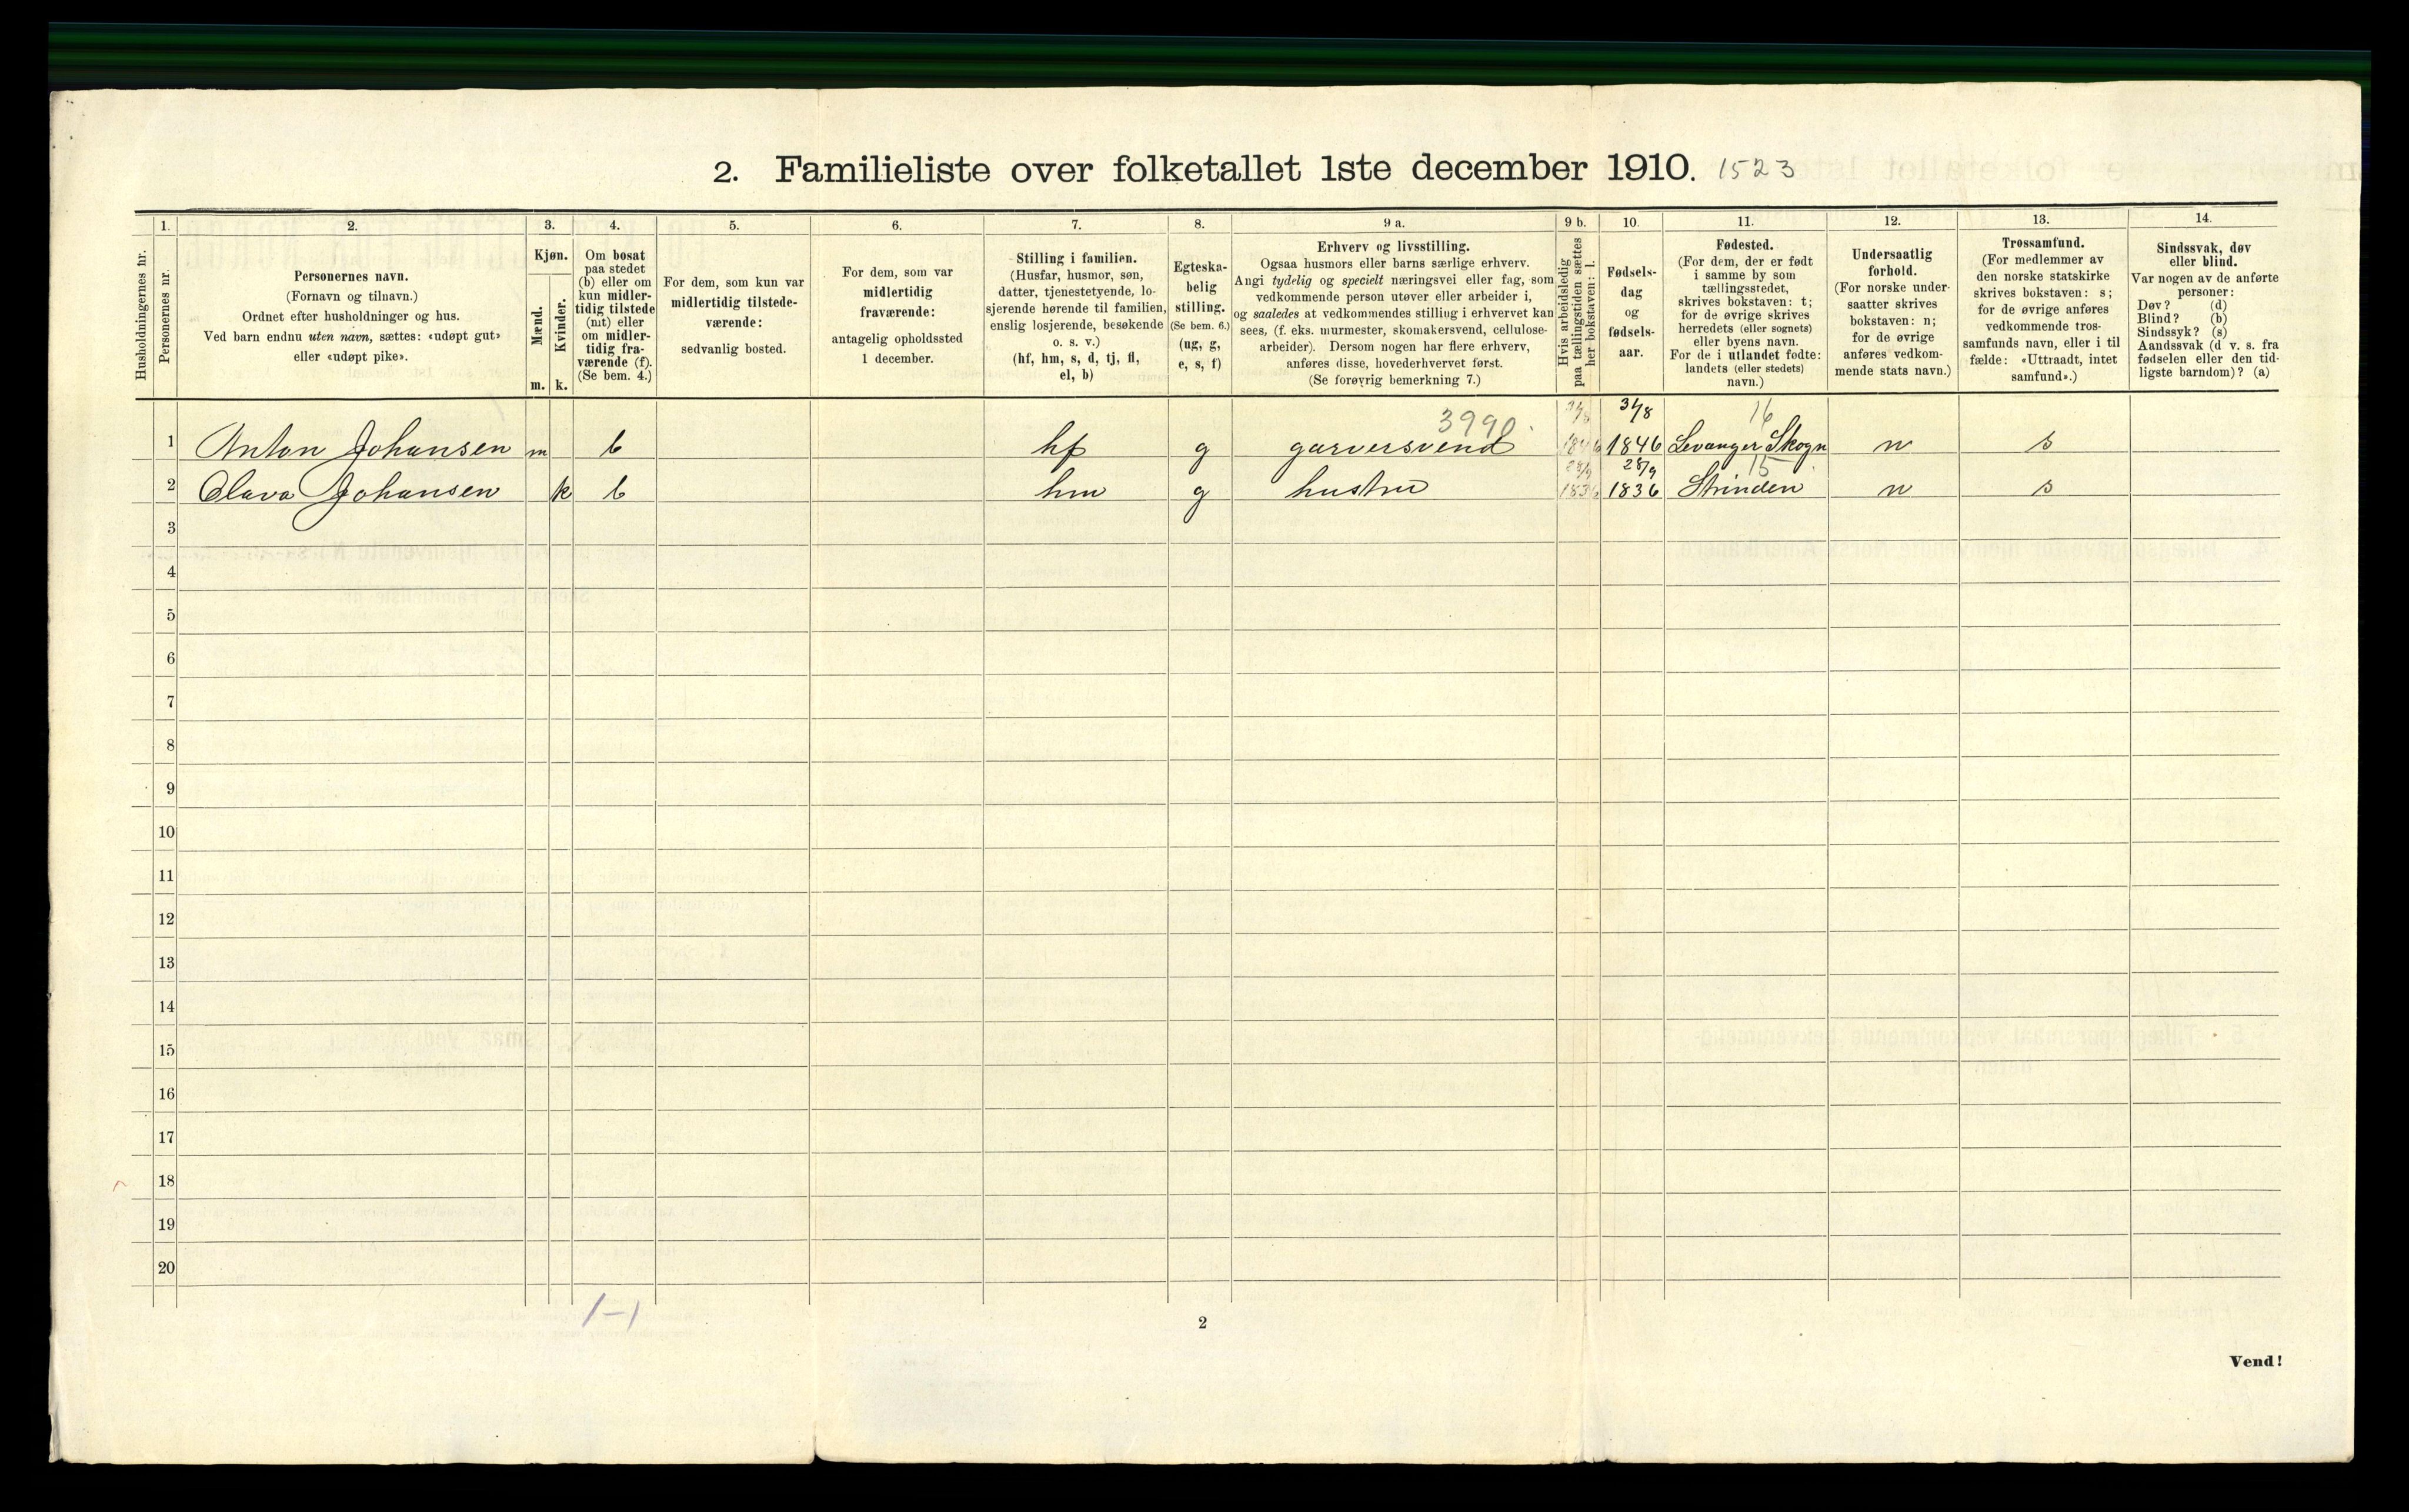 2. Familieliste over folketallet 1ste december 1910. 1523
Husholdningernes nr.
1.
Personernes nr.
2.
Personernes navn.
(Fornavn og tilnavn.)
Ordnet efter husholdninger og hus.
Ved barn endnu uten navn, sættes: «udøpt gut»
eller «udøpt pike».
3.
Kjøn.
Mænd.
m.
Kvinder.
k.
4.
Om bosat
paa stedet
(b) eller om
kun midler-
tidig tilstede
(mt) eller
om midler-
tidig fra-
værende (f).
(Se bem. 4.)
5.
For dem, som kun var
midlertidig tilstede-
værende:
sedvanlig bosted.
6.
For dem, som var
midlertidig
fraværende:
antagelig opholdssted
1 december.
7.
Stilling i familien.
(Husfar, husmor, søn,
datter, tjenestetyende, lo-
sjerende hørende til familien,
enslig losjerende, besøkende
o. s. v.)
(hf, hm, s, d, tj, fl,
el, b)
8.
Egteska-
belig
stilling.
(Se bem. 6.)
(ug, g,
e, s, f)
9 a.
Erhverv og livsstilling.
Ogsaa husmors eller barns særlige erhverv.
Angi tydelig og specielt næringsvei eller fag, som
vedkommende person utøver eller arbeider i,
og saaledes at vedkommendes stilling i erhvervet kan
sees, (f. eks. murmester, skomakersvend, cellulose-
arbeider). Dersom nogen har flere erhverv,
anføres disse, hovederhvervet først.
(Se forøvrig bemerkning 7.)
9 b.
Hvis arbeidsledig
paa tællingstiden sættes
her bokstaven: l.
10.
Fødsels-
dag
og
fødsels-
aar.
11.
Fødested.
(For dem, der er født
i samme by som
tællingsstedet,
skrives bokstaven: t;
for de øvrige skrives
herredets (eller sognets)
eller byens navn.
For de i utlandet fødte:
landets (eller stedets)
navn.)
12.
Undersaatlig
forhold.
(For norske under-
saatter skrives
bokstaven: n;
for de øvrige
anføres vedkom-
mende stats navn.)
13.
Trossamfund.
(For medlemmer av
den norske statskirke
skrives bokstaven: s;
for de øvrige anføres
vedkommende tros-
samfunds navn, eller i til
fælde: «Uttraadt, intet
samfund».)
14.
Sindssvak, døv
eller blind.
Var nogen av de anførte
personer:
Døv? (d)
Blind? (b)
Sindssyk? (s)
Aandssvak (d v. s. fra
fødselen eller den tid-
ligste barndom)? (a)
3990 31/8 31/8 16
1 Anton Johansen m b hf g garversvend 1846 1846 Levanger Skogn n s
28/9 28/9 15
2 Olava Johansen k b hm g hustru 1836 1836 Strinden n s
3
4
5
6
7
8
9
10
11
12
13
14
15
16
17
18
19
20
1-1
2
Vend!